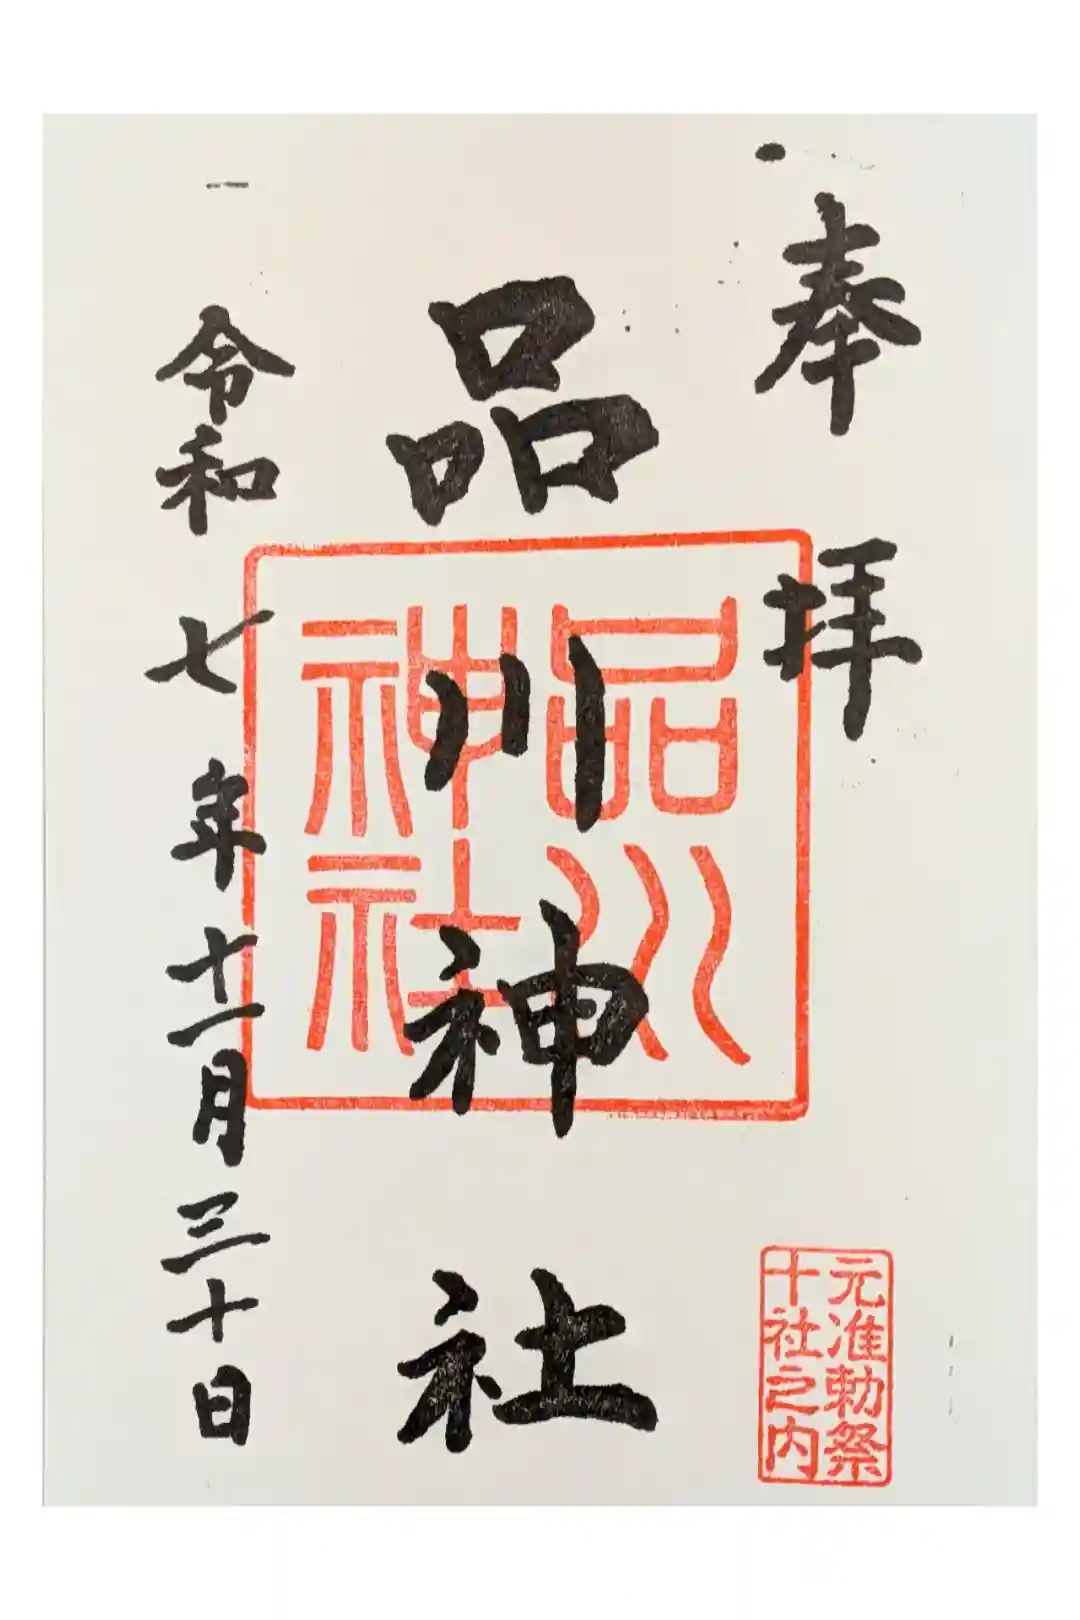 奉拝
品川神社
品川
神社
令和七年十一月三十日
元准勅祭
十社之内